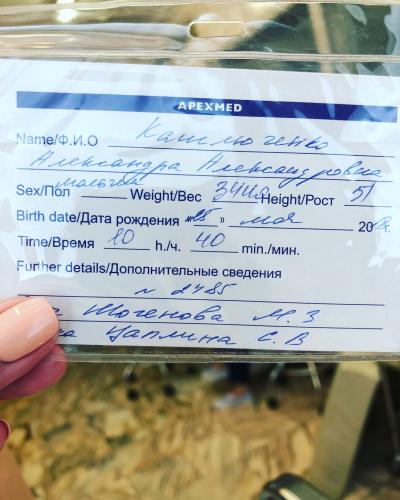 APEXMED
Name/Ф.И.О
Александра Александровна
Sex/Пол мальчик Weight/Вес Height/Рост 51
Birth date/Дата рождения » мая 20
Time/Время 10 h./ч. 40 min./мин.
Further details/Дополнительные сведения
№ 2485
Шогенова М. З
Цаплина С. В